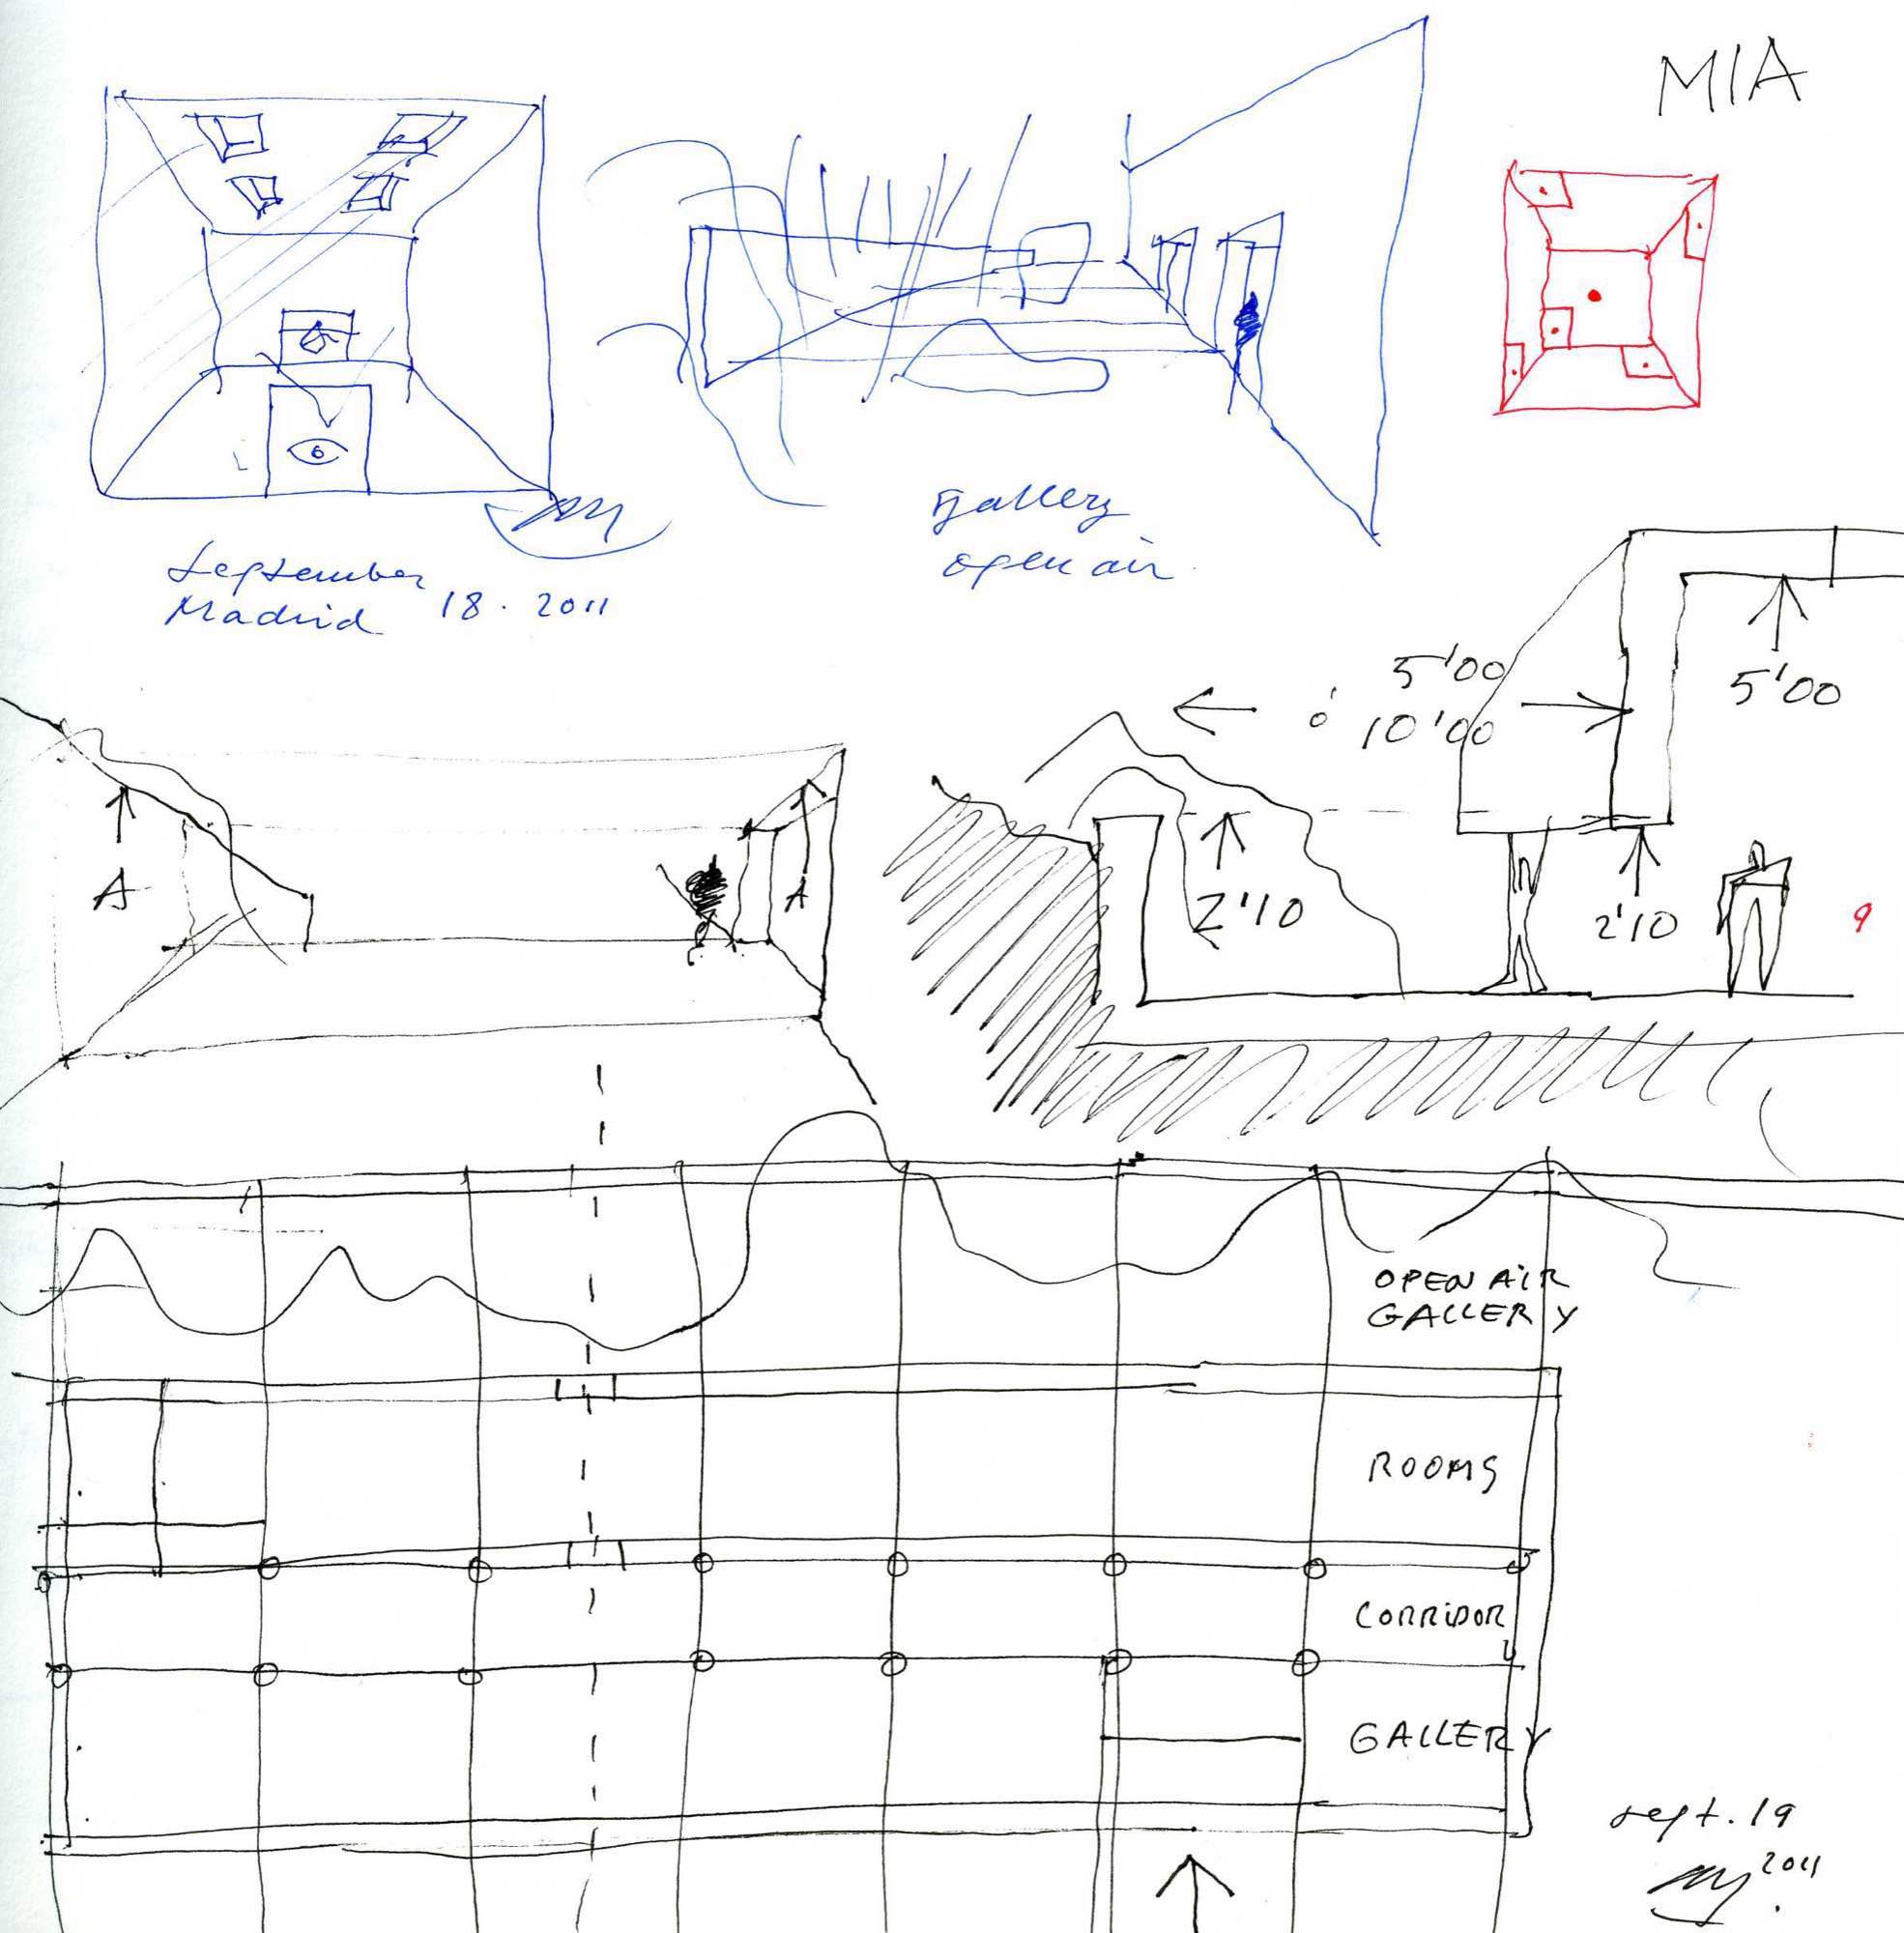 MIA
Gallery
open air
September
Madrid 18. 2011
5'00
ó 10'00
5'00
A
A
2'10
2'10
9
OPEN AIR
GALLERY
ROOMS
CORRIDOR
GALLERY
sept. 19
2011